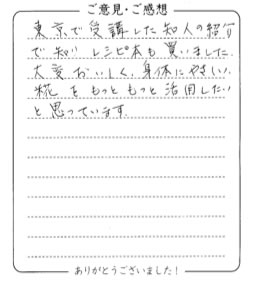 ご意見・ご感想
東京で受講した知人の紹介
で知り レシピ本も買いました.
大変おいしく、身体にやさしい.
糀をもっともっと活用したい
と思っています.
ありがとうございました!